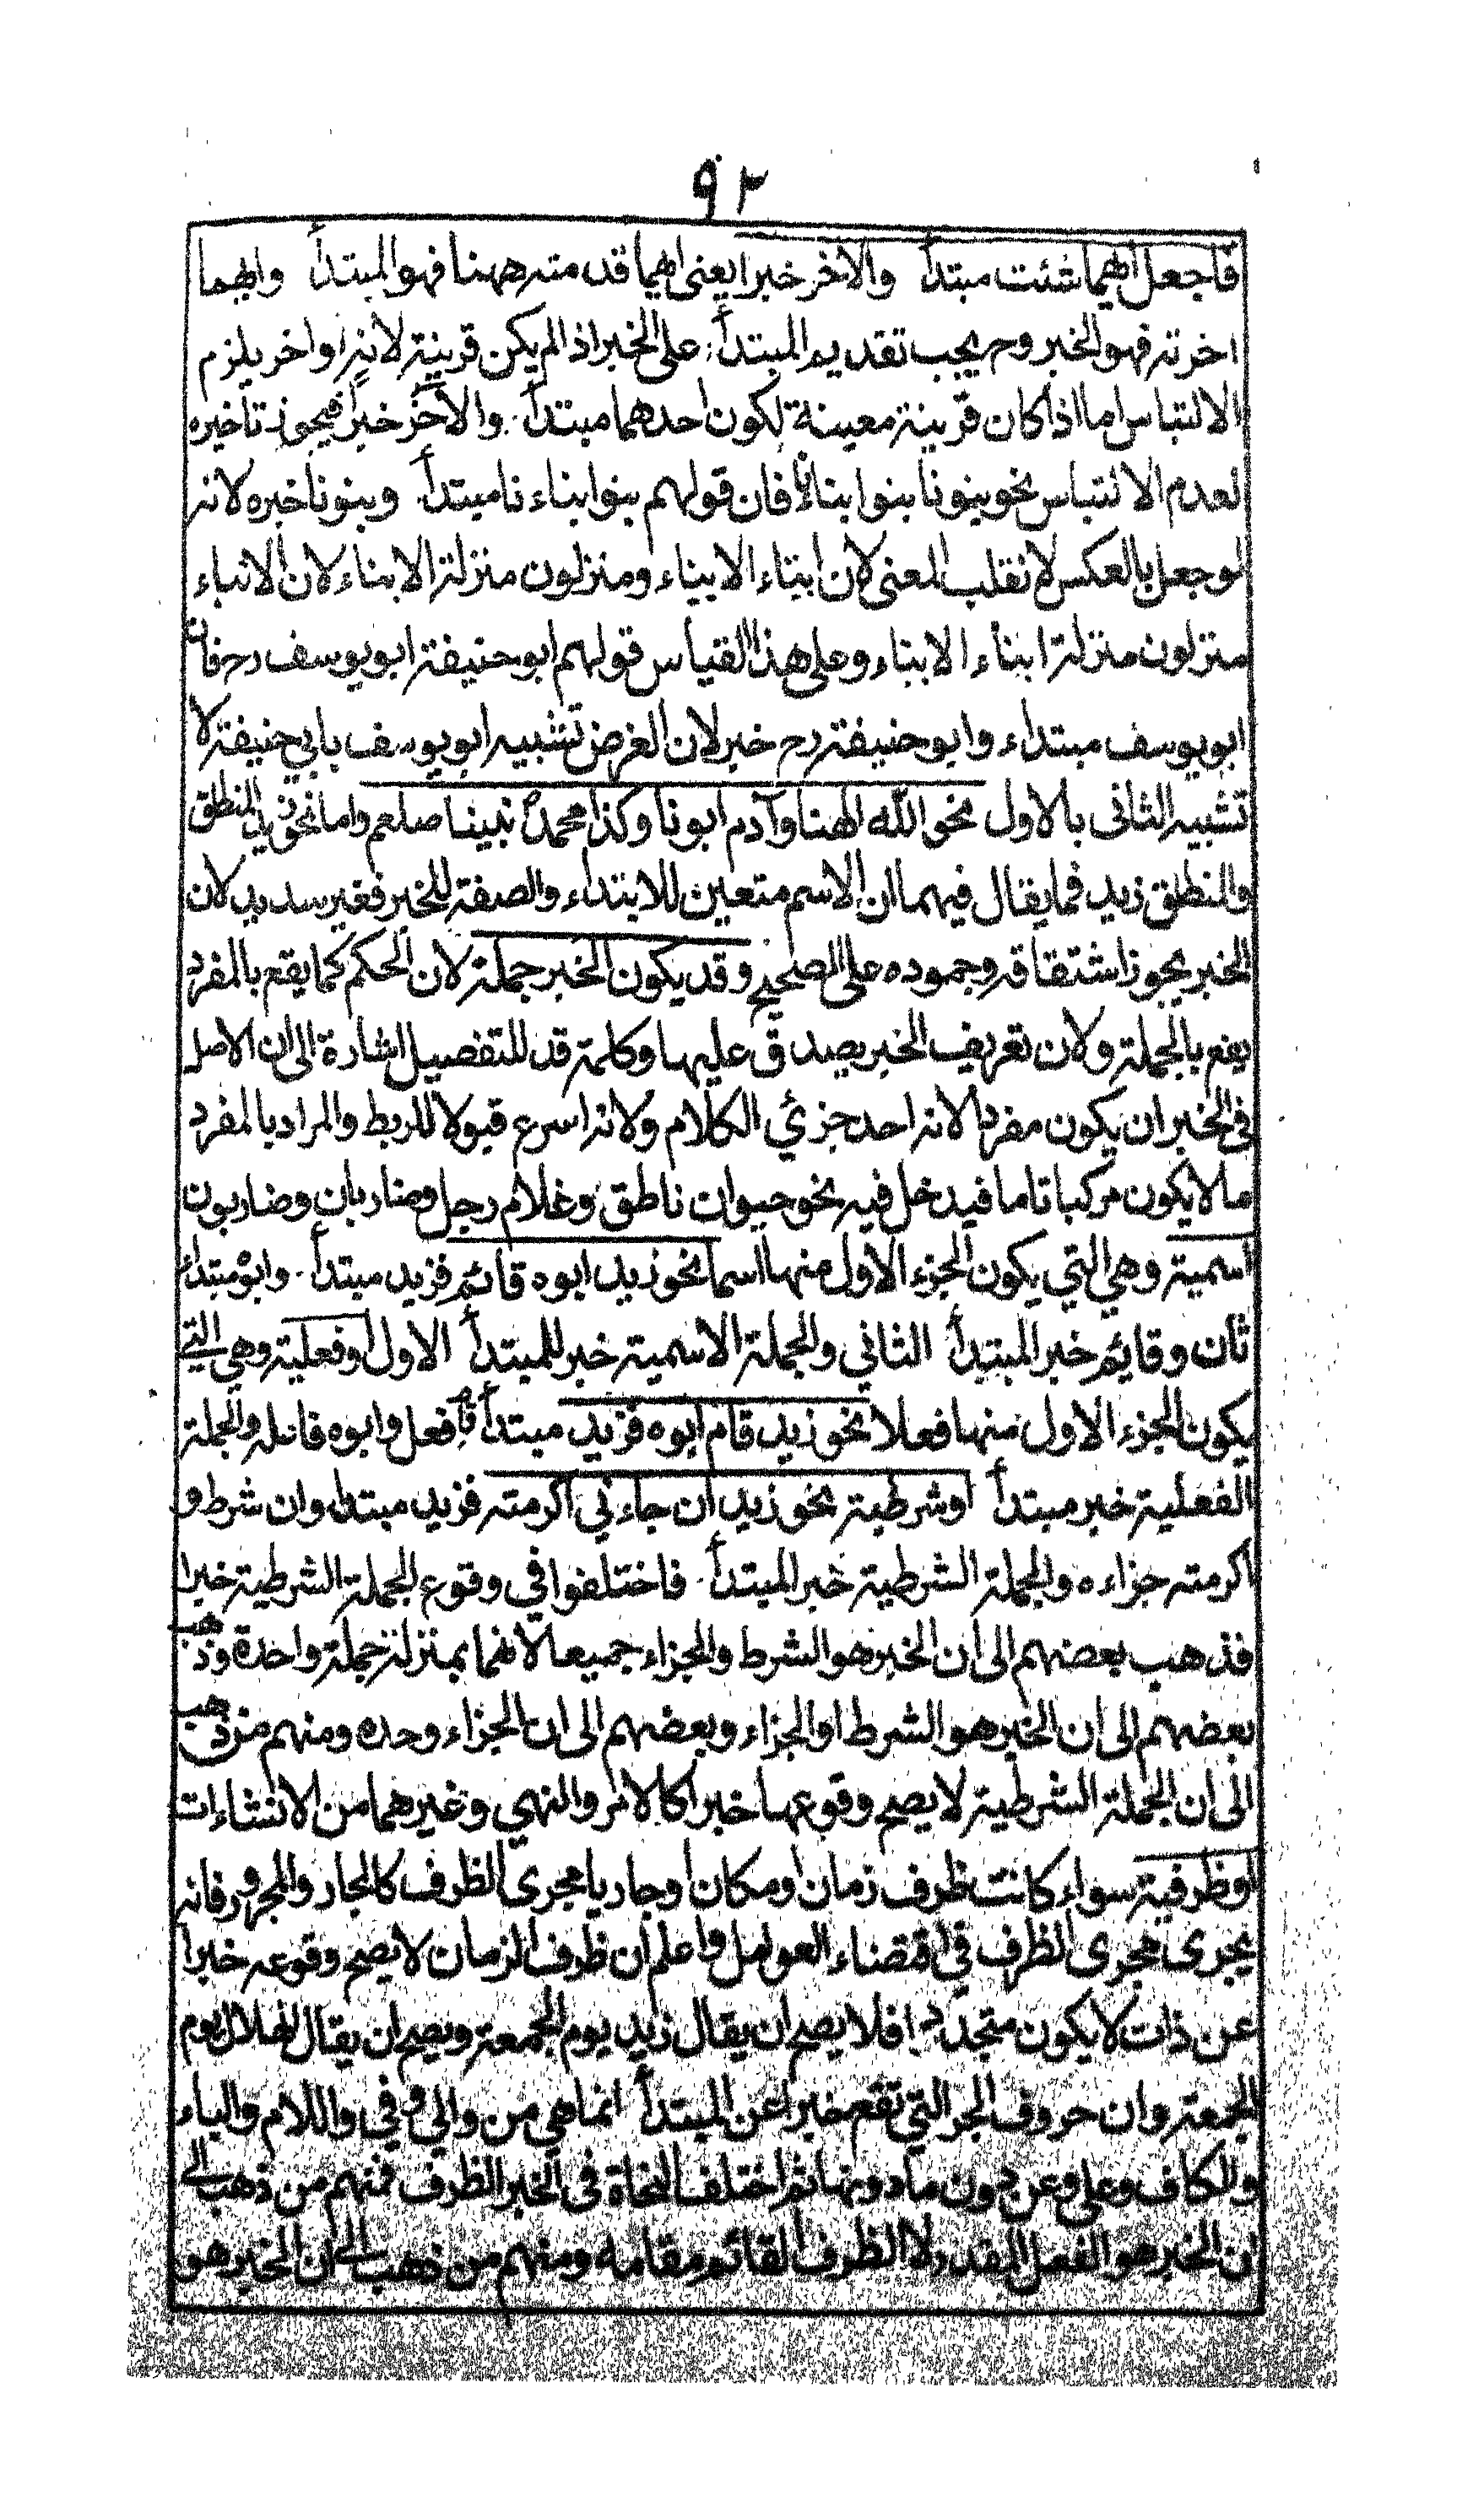 ٩٢
فاجعل ايهما شئت مبتدأ والآخر خبرا يعنى ايهما قدمته ههنا فهو المبتدأ وايهما
اخرته فهو الخبر وح يجب تقديم المبتدأ على الخبر اذ الم يكن قرينة لانه لو اخر يلزم
الالتباس اما اذا كان قرينة معينة لكون احدهما مبتدأ والآخر خبرا فيجوز تاخيره
لعدم الالتباس نحو بنونا بنوا بنائنا فان قولهم بنوا بناء نا مبتدأ وبنونا خبره لانه
لو جعل بالعكس لانقلب المعنى لان ابناء الابناء ومنزلون منزلة الابناء لان الابناء
منزلون منزلة ابناء الابناء وعلى هذا القياس قولهم ابو حنيفة ابو يوسف رح فان
ابو يوسف مبتداء وابو حنيفة رح خبر لان الغرض تشبيه ابو يوسف بابي حنيفة لا
تشبيه الثانى بالاول نحو الله الهنا وآدم ابونا وكذا محمد نبينا صلعم واما نحو زيد المنطلق
والمنطلق زيد فما يقال فيهما ان الاسم متعين للابتداء والصفة للخبر فغير سديد لان
الخبر يجوز اشتقاقه وجموده على الصحيح وقد يكون الخبر جملة لان الحكم كما يقع بالمفرد
يقع بالجملة ولان تعريف الخبر يصدق عليها وكلمة قد للتفصيل اشارة الى ان الاصل
فى الخبر ان يكون مفردا لانه احد جزئي الكلام ولانه اسرع قبولا للربط والمراد بالمفرد
ما لا يكون مركبا تاما فيدخل فيه نحو حيوان ناطق وغلام رجل وضاربان وضاربون
اسمية وهي التي يكون الجزء الاول منها اسما نحو زيد ابوه قائم فزيد مبتدأ وابوه مبتداء
ثان وقايم خبر المبتدأ الثاني والجملة الاسمية خبر للمبتدأ الاول او فعلية وهي التي
يكون الجزء الاول منها فعلا نحو زيد قام ابوه فزيد مبتدأ قام فعل وابوه فاعله والجملة
الفعلية خبر مبتدأ او شرطية نحو زيد ان جاء ني اكرمته فزيد مبتداء وان شرط و
اكرمته جزاءه والجملة الشرطية خبر المبتدأ فاختلفوا في وقوع الجملة الشرطية خبرا
فذهب بعضهم الى ان الخبر هو الشرط والجزاء جميعا لانهما بمنزلة جملة واحدة وذهب
بعضهم الى ان الخبر هو الشرط او الجزاء وبعضهم الى ان الجزاء وحده ومنهم من ذهب
الى ان الجملة الشرطية لا يصح وقوعها خبرا كالامر والنهي وغيرهما من الانشاءات
او ظرفية سواء كانت ظرف زمان او مكان او جاريا مجرى الظرف كالجار والمجرور فانه
يجرى مجرى الظرف في اقتضاء العوامل واعلم ان ظرف الزمان لا يصح وقوعه خبرا
عن ذات لا يكون متجددا فلا يصح ان يقال زيد يوم الجمعة ويصح ان يقال الهلال يوم
الجمعة وان حروف الجر التي تقع خبرا عن المبتدأ انما هي من والى وفي واللام والباء
والكاف وعلى وعن دون مادونها ثم اختلف النحاة فى الخبر الظرف فمنهم من ذهب الى
ان الخبر هو الفعل المقدر لا الظرف القائم مقامه ومنهم من ذهب الى ان الخبر هو